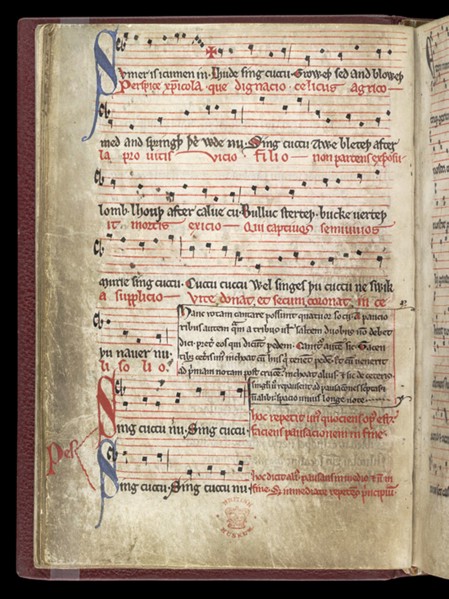 Sumer is icumen in· Lhude sing cuccu· Groweþ sed and bloweþ
Perspice xp̄icola· que dignacio celicus agrico-
med and springþ þe wde nu· Sing cuccu Awe bleteþ after
la pro uitis vicio filio non parcens exposu-
lomb· lhouþ after calue cu· Bulluc sterteþ· bucke uerteþ
it mortis exicio Qui captiuos semiuiuos
murie sing cuccu· Cuccu cuccu Wel singes þu cuccu ne swik
a supplicio Vite donat et secum coronat in ce
þu nauer nu·
li solio·
Hanc rotam cantare possunt quatuor socij· A paucio
ribus autem q̄m a tribus ul' saltem duobus nō debet
dici· preter eos qui dicūt pedem· Canit'̄ autē sic· Tacen
tib; ceteris un' inchoat cū hiis q̄ tenēt pedē· et cū uenerit
ad primam notam post crucē· inchoat alius· et sic de ceteris
singli ū repausent ad pausaciones scriptas et
nō alibi· spacio unius longe note·
Sing cuccu nu· Sing cuccu·
hoc repetit un' quociens op' est·
faciens pausacionem in fine·
Pes
Sing cuccu· Sing cuccu nu·
hoc dicit alius· pausans in medio et nō in
fine· Set immediate repetens principiū·
BRITISH MUSEUM